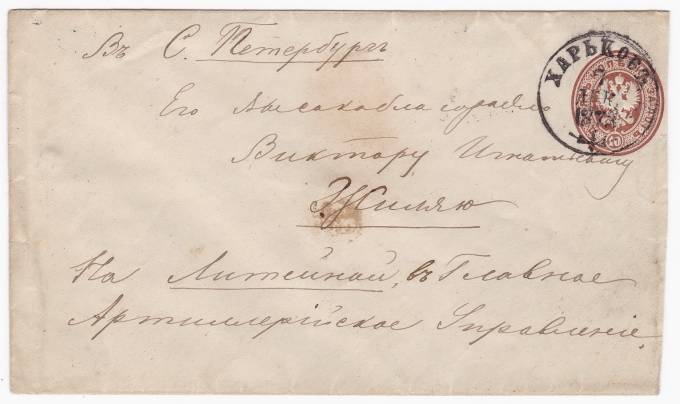 Въ С. Петербургъ
ХАРЬКОВЪ
Его Высокоблагородію
Виктору Игнатьевичу
На Литейной, въ Главное
Артиллерійское Управленіе.